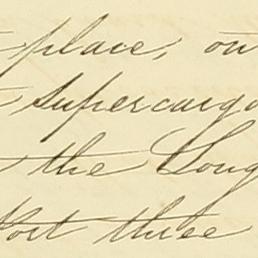 place, on
supercargo
the Long
Port three